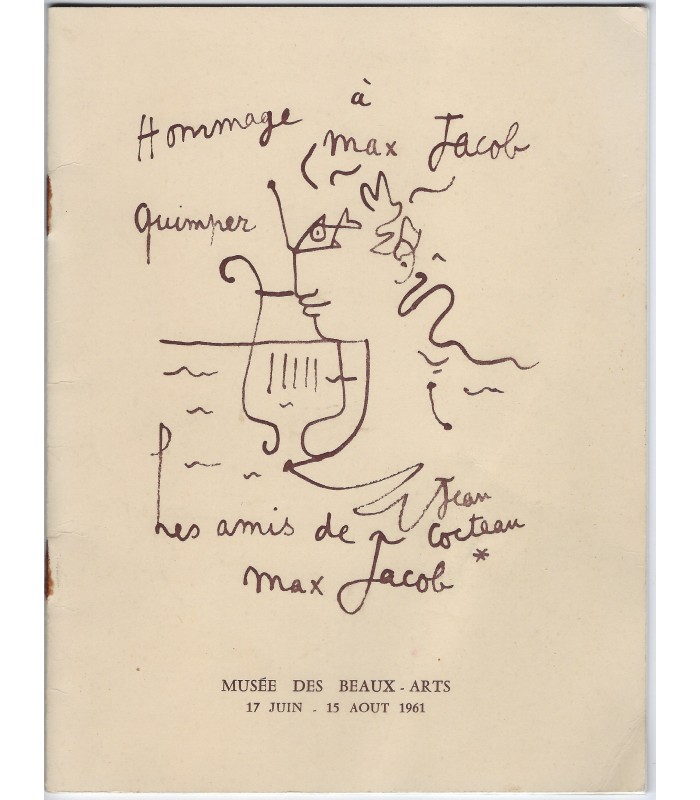 Hommage à
Max Jacob
Quimper
Les amis de
Max Jacob
Jean
Cocteau
*
MUSÉE DES BEAUX-ARTS
17 JUIN - 15 AOUT 1961